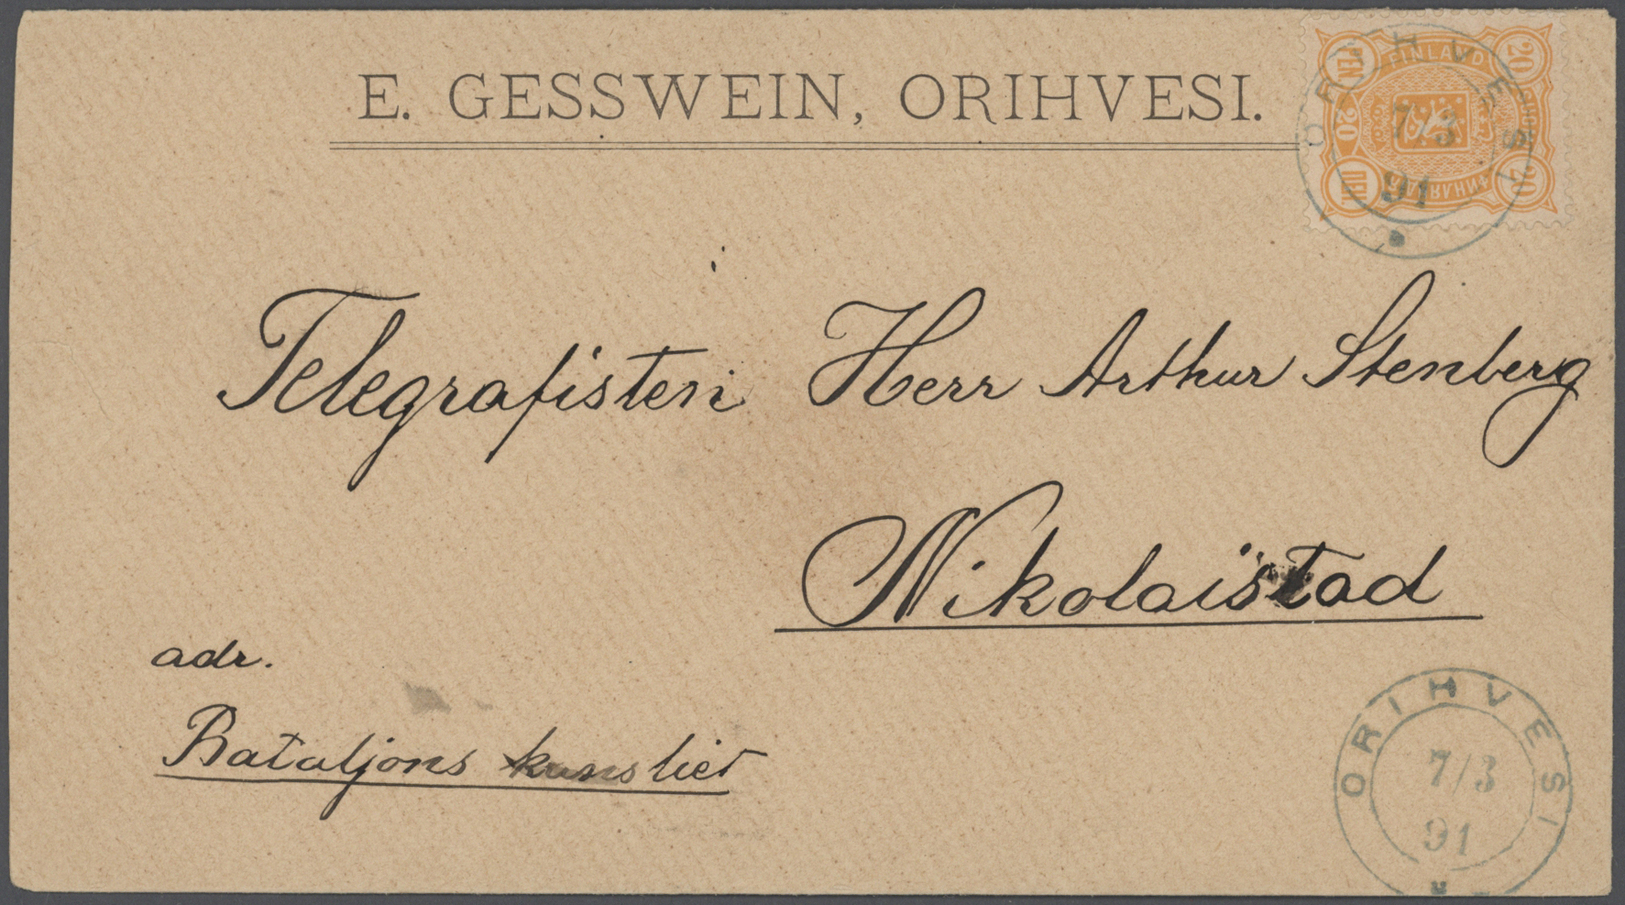 E. GESSWEIN, ORIHVESI.
FINLAND
PEN 20
20
20
ПЕН 20
ORIHVESI
7/3
91
Telegrafisten Herr Arthur Stenberg
Nikolaistad
adr.
Bataljons kansliet
ORIHVESI
7/3
91